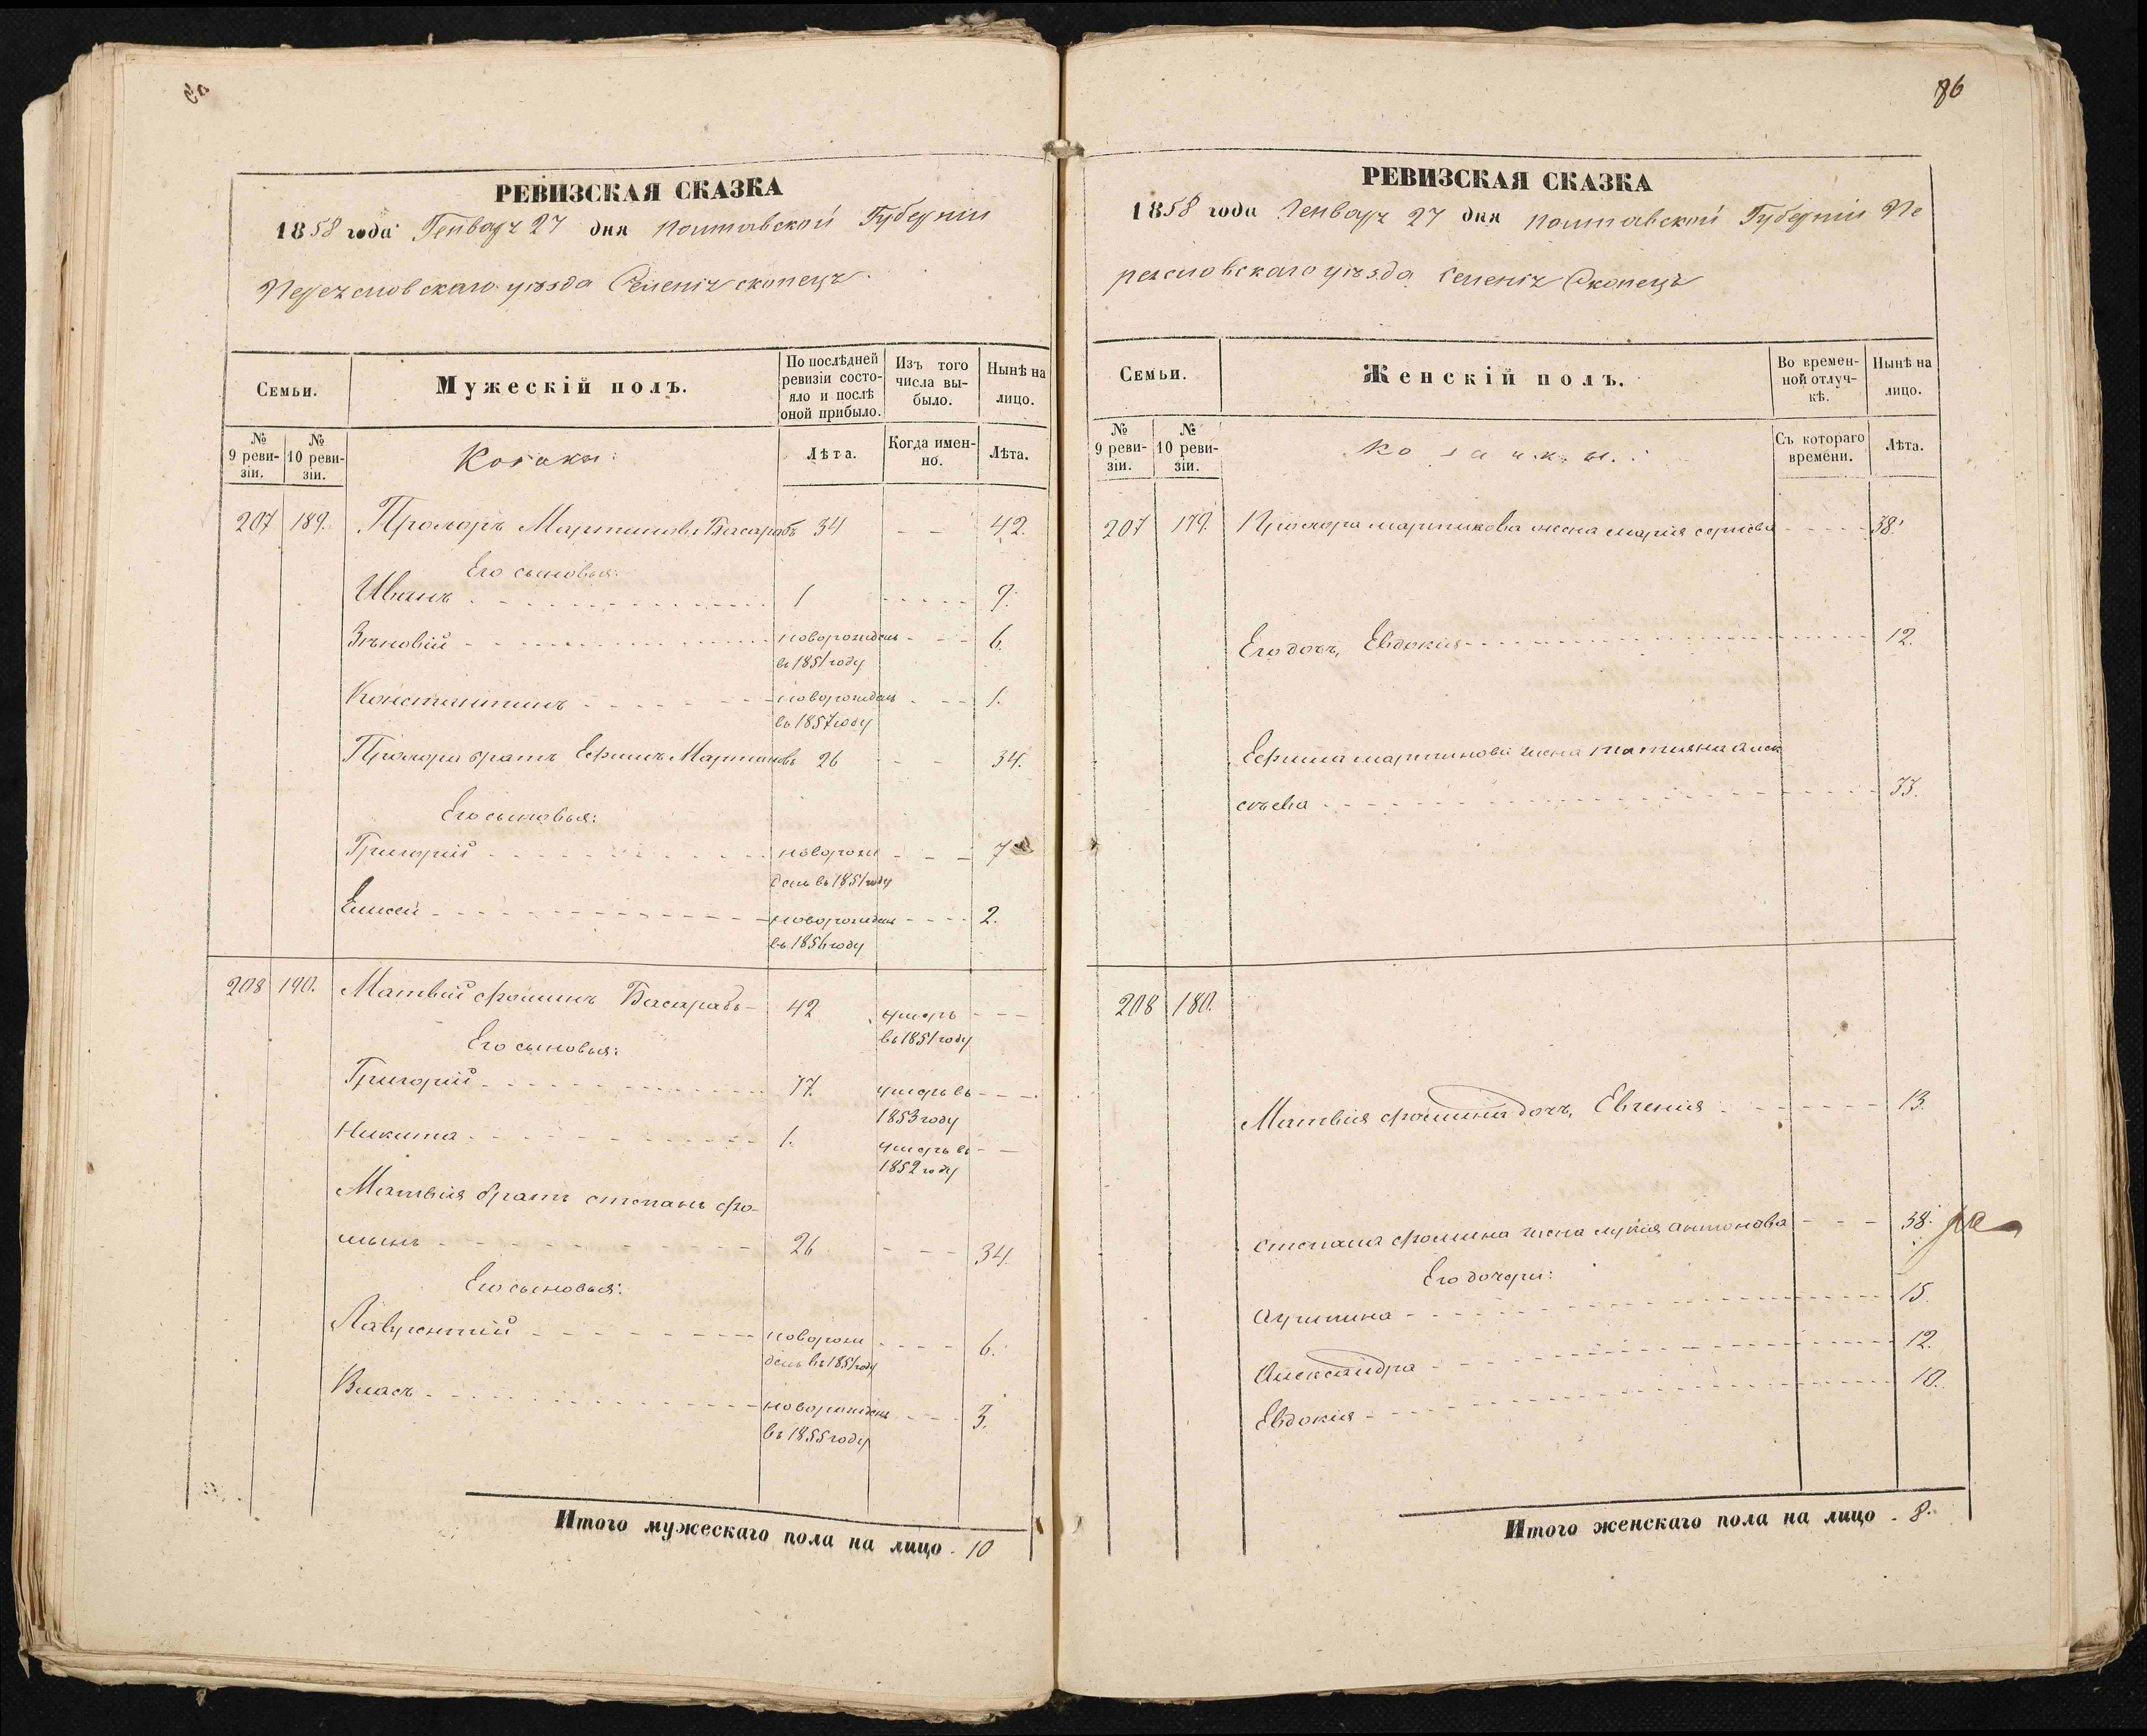 РЕВИЗСКАЯ СКАЗКА
1858 года Генваря 27 дня Полтавской Губерніи
Переясловского уѣзда Селенія Скопецъ
Семьи.
Мужескій полъ.
По послѣдней ревизіи состояло и послѣ оной прибыло.
Изъ того числа выбыло.
Нынѣ на лицо.
№ 9 ревизіи.
№ 10 ревизіи.
Козаки:
Лѣта.
Когда именно.
Лѣта.
207 189. Прохоръ Мартиновъ Басарабъ 34 42.
Его сыновья:
Иванъ 1 9.
Зѣновій новорожденъ 6.
въ 1851 году
Константинъ новорожденъ 1.
въ 1857 году
Прохора братъ Ефимъ Мартиновъ 26 34.
Его сыновья:
Григорій новорож 7
денъ въ 1851 году
Елисей новорожденъ 2.
въ 1856 году
208 190. Матвій Фоминъ Басарабъ 42 умеръ
въ 1851 году
Его сыновья:
Григорій 17. умеръ въ
1853 году
Никита 1. умеръ въ
1852 году
Матвія братъ степанъ фо-
минъ 26 34.
Его сыновья:
Лаврентій новорож 6.
денъ въ 1851 году
Власъ новорожденъ 3.
въ 1855 году
Итого мужескаго пола на лицо 10
86
РЕВИЗСКАЯ СКАЗКА
1858 года Генваря 27 дня Полтавской Губерніи Пе
реясловскаго уѣзда Селенія Скопецъ
Семьи.
Женскій полъ.
Во временной отлучкѣ.
Нынѣ на лицо.
№ 9 ревизіи.
№ 10 ревизіи.
Козачки:
Съ котораго времени.
Лѣта.
207 179. Прохора мартинова жена марія 38.
Его дочь, Евдокия 12.
Ефима мартинова жена татияна алек
сѣева 33.
208 180.
Матвія фомина дочь, Евгенія 13.
степана фомина жена лукія антонова 38.
Его дочери:
15.
Александра 12.
Евдокия 10.
Итого женскаго пола на лицо 8.